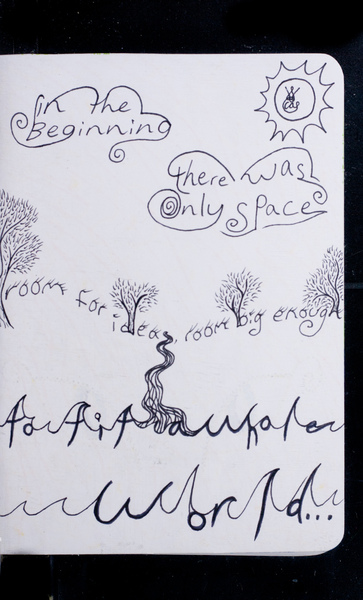 in the
Beginning
there was
Only space
room for ideas, room big enough
to fit a whole
world...